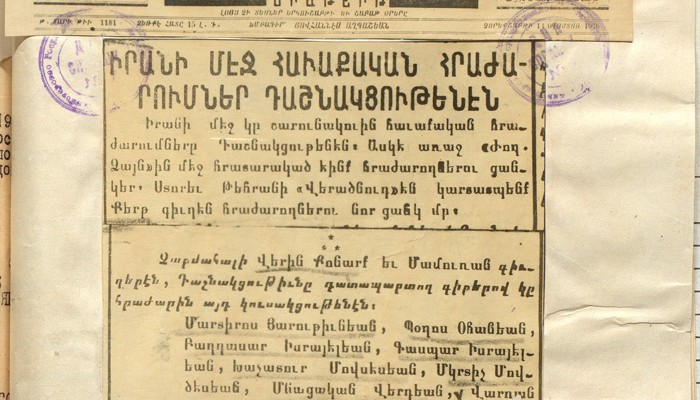 ԼՈՅՍ ԿԸ ՏԵՍՆԵՐ ԵՐԿՈՒՇԱԲԹԻ ՈՒ ՇԱԲԱԹ ՕՐԵՐԸ
ԻՐԱՆԻ ՄԷՋ ՀԱՒԱՔԱԿԱՆ ՀՐԱԺԱ-
ՐՈՒՄՆԵՐ ԴԱՇՆԱԿՑՈՒԹԵՆԷՆ
Իրանի մէջ կը շարունակուին հաւաքական հրա-
ժարումները Դաշնակցութենէն։ Ասկէ առաջ «Ժող.
Ձայն»ին մէջ հրատարակած էինք հրաժարողներու ցան-
կեր։ Ստորեւ Թեհրանի «Վերածնունդ»էն կարտատպենք
Քերթ գիւղէն հրաժարողներու նոր ցանկ մը։
Չարմահալի Վերին Քոնարք եւ Մամուռան գիւ-
ղերէն, Դաշնակցութիւնը դատապարտող գիրերով կը
հրաժարին այդ կուսակցութենէն։
Մարտիրոս Յարութիւնեան, Պօղոս Օհանեան,
Բաղդասար Իսրայէլեան, Գասպար Իսրայէլ-
եան, Խաչատուր Մովսէսեան, Մկրտիչ Մով-
սէսեան, Մնացական Վերդեան, Վարուժ